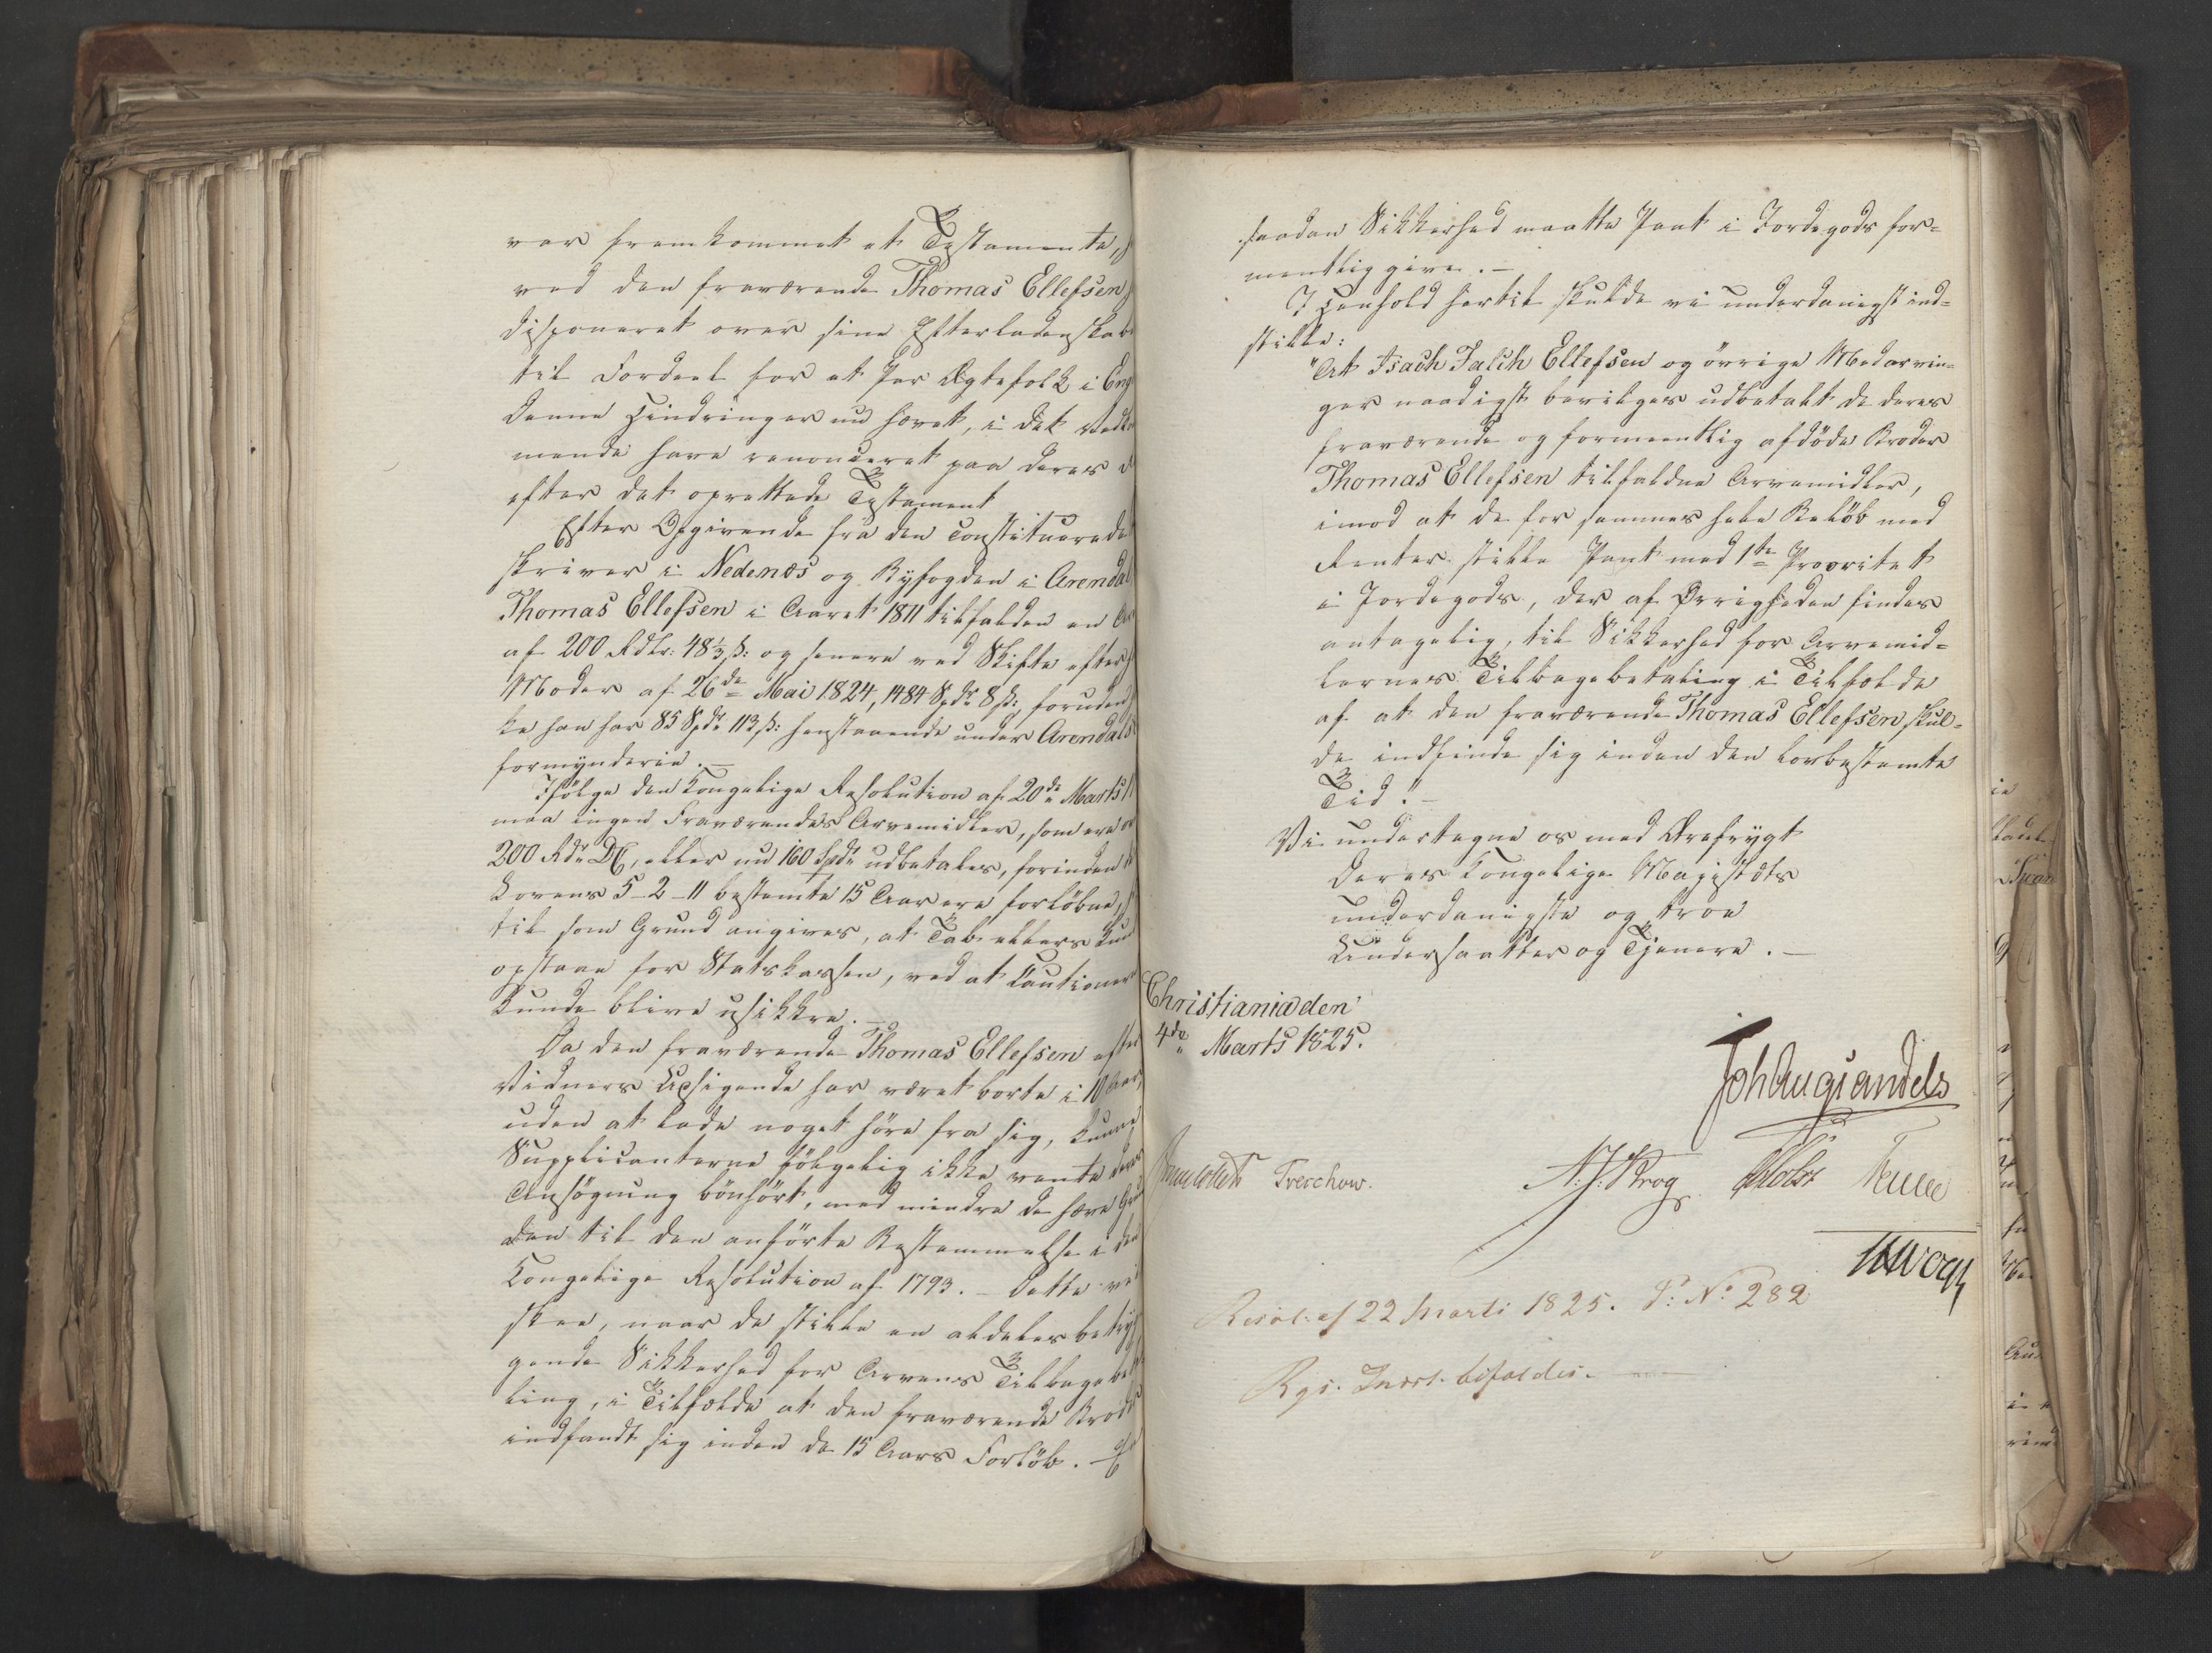 var fremkommet et Testamente,
ved den fraværende Thomas Ellefsen
disponeret over sine Efterladenskab
til Fordeel for et Par Ægtefolk i Eng
denne Hindringer nu hævet, i det Vedko
mende have renonceret paa deres
efter det oprettede Testament
Efter Opgivende fra den constituerede
skriver i Nedenæs og Byfogden i Arendal
Thomas Ellefsen i Aaret 1811 tilfalden en Ar
af 200 Rdlr: 48⅓ ß: og senere ved Skifte efter
Moder af 26de Mai 1824, 1484 Spdr 8 ß: foruden
ke han har 85 Spdr 113 ß: henstaaende under Arendals
formynderie.—
Ifølge den Kongelige Resolution af 20de Marts 1
maa ingen Fraværendes Arvemidler, som ere o
200 Rdr DC, eller nu 160 Spdr udbetales, forinden
Lovens 5-2-11 bestemte 15 Aar ere forløbne,
til som Grund angives, at Tab ellers kun
opstaae for Statskassen, ved at Cautioner
kunde blive usikkre.—
Da den fraværende Thomas Ellefsen efter
Vidners Udsigende har været borte i 10 Aar,
uden at lade noget höre fra sig, kunne
Supplicanterne fölgelig ikke vente deres
Ansögning bönhört, med mindre de hæve Gru
den til den anförte Bestemmelse i den
Kongelige Resolution af 1793. – Dette vil
skee, naar de stille en aldeles betryg
gende Sikkerhed for Arvens Tilbagebeta
ling, i Tilfælde at den fraværende Broder
indfandt sig inden de 15 Aars Forløb. –
saadan Sikkerhed maatte Pant i Jordegods for=
mentlig give.—
I Henhold hertil skulde vi underdanigst ind=
stille:
"At Isach Falch Ellefsen og övrige Medarvin=
ger naadigst bevilges udbetalt de deres
fraværende og formeentlig afdöde Broder
Thomas Ellefsen tilfaldne Arvemidler,
imod at de for sammes hele Belöb med
Renter stille Pant med 1te Prioritet
i Jordegods, der af Övrigheden findes
antagelig, til Sikkerhed for Arvemid=
lernes Tilbagebetaling i Tilfælde
af at den fraværende Thomas Ellefsen skul=
de indfinde sig inden den lovbestemte
Tid."—
Vi undertegne os med Ærefrygt
Deres Kongelige Majestæts
underdanigste og troe
Undersaatter og Tjenere.—
Christiania den
4de Marts 1825.
Joh Aug Sandels
Jonas Collett Treschow. N. J. Krog Holst
Vogt
Resol: af 22 Marti 1825. P: No 282
Rgs. Inst. bifaldes.—